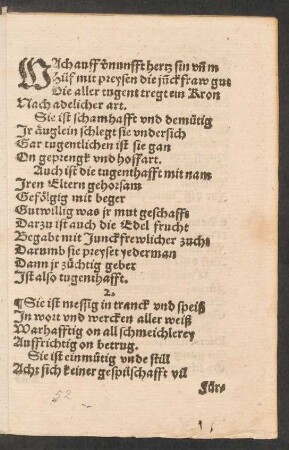 WAch auff vnnunfft hertz sin vñ m
Hilf mit preysen die jūckfraw gut
Die aller tugent tregt ein Kron
Nach adelicher art.
Sie ist schamhafft vnd demütig
Jr äuglein schlegt sie vndersich
Gar tugentlichen ist sie gan
On geprengk vnd hoffart.
Auch ist die tugenthafft mit nam
Jren Eltern gehorsam
Gefölgig mit beger
Gutwillig was jr mut geschafft
Darzu ist auch die Edel frucht
Begabt mit Junckfrewlicher zucht
Darumb sie preyset yederman
Dann jr züchtig geber
Jst also tugenthafft.
2.
¶Sie ist messig in tranck vnd speiß
Jn wort vnd wercken aller weiß
Warhafftig on all schmeichlerey
Auffrichtig on betrug.
Sie ist einmütig vnde still
Acht sich keiner gespilschafft vil
Fürs
52